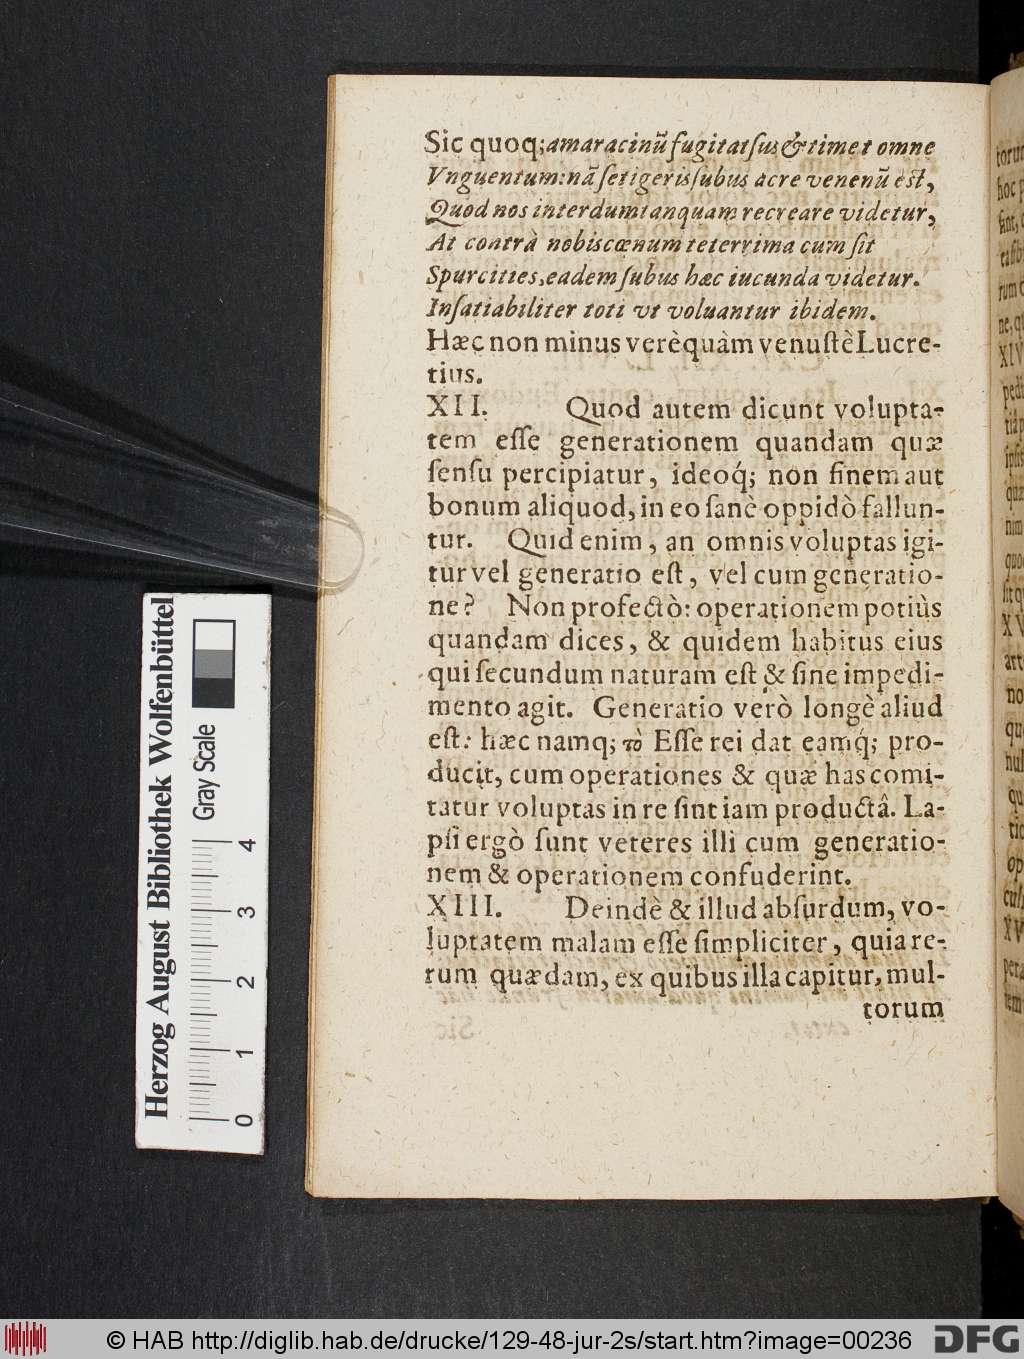 Sic quoq; amaracinũ fugitat ſus & timet omne
Vnguentum: nã ſetigeris ſubus acre venenũ eſt,
Quod nos interdum tanquam recreare videtur,
At contrà nobis cœnum teterrima cum ſit
Spurcities, eadem ſubus hæc iucunda videtur.
Inſatiabiliter toti vt voluantur ibidem.
Hæc non minus verè quàm venuſtè Lucre-
tius.
XII. Quod autem dicunt volupta-
tem eſſe generationem quandam quæ
ſenſu percipiatur, ideoq́; non finem aut
bonum aliquod, in eo ſanè oppidò fallun-
tur. Quid enim, an omnis voluptas igi-
tur vel generatio eſt, vel cum generatio-
ne? Non profectò: operationem potiùs
quandam dices, & quidem habitus eius
qui ſecundum naturam eſt & ſine impedi-
mento agit. Generatio verò longè aliud
eſt: hæc namq; τὸ Eſſe rei dat eamq́; pro-
ducit, cum operationes & quæ has comi-
tatur voluptas in re ſint iam productâ. La-
pſi ergò ſunt veteres illi cum generatio-
nem & operationem confuderint.
XIII. Deindè & illud abſurdum, vo-
luptatem malam eſſe ſimpliciter, quia re-
rum quædam, ex quibus illa capitur, mul-
torum
Herzog August Bibliothek Wolfenbüttel
Gray Scale
0 1 2 3 4
© HAB http://diglib.hab.de/drucke/129-48-jur-2s/start.htm?image=00236
DFG